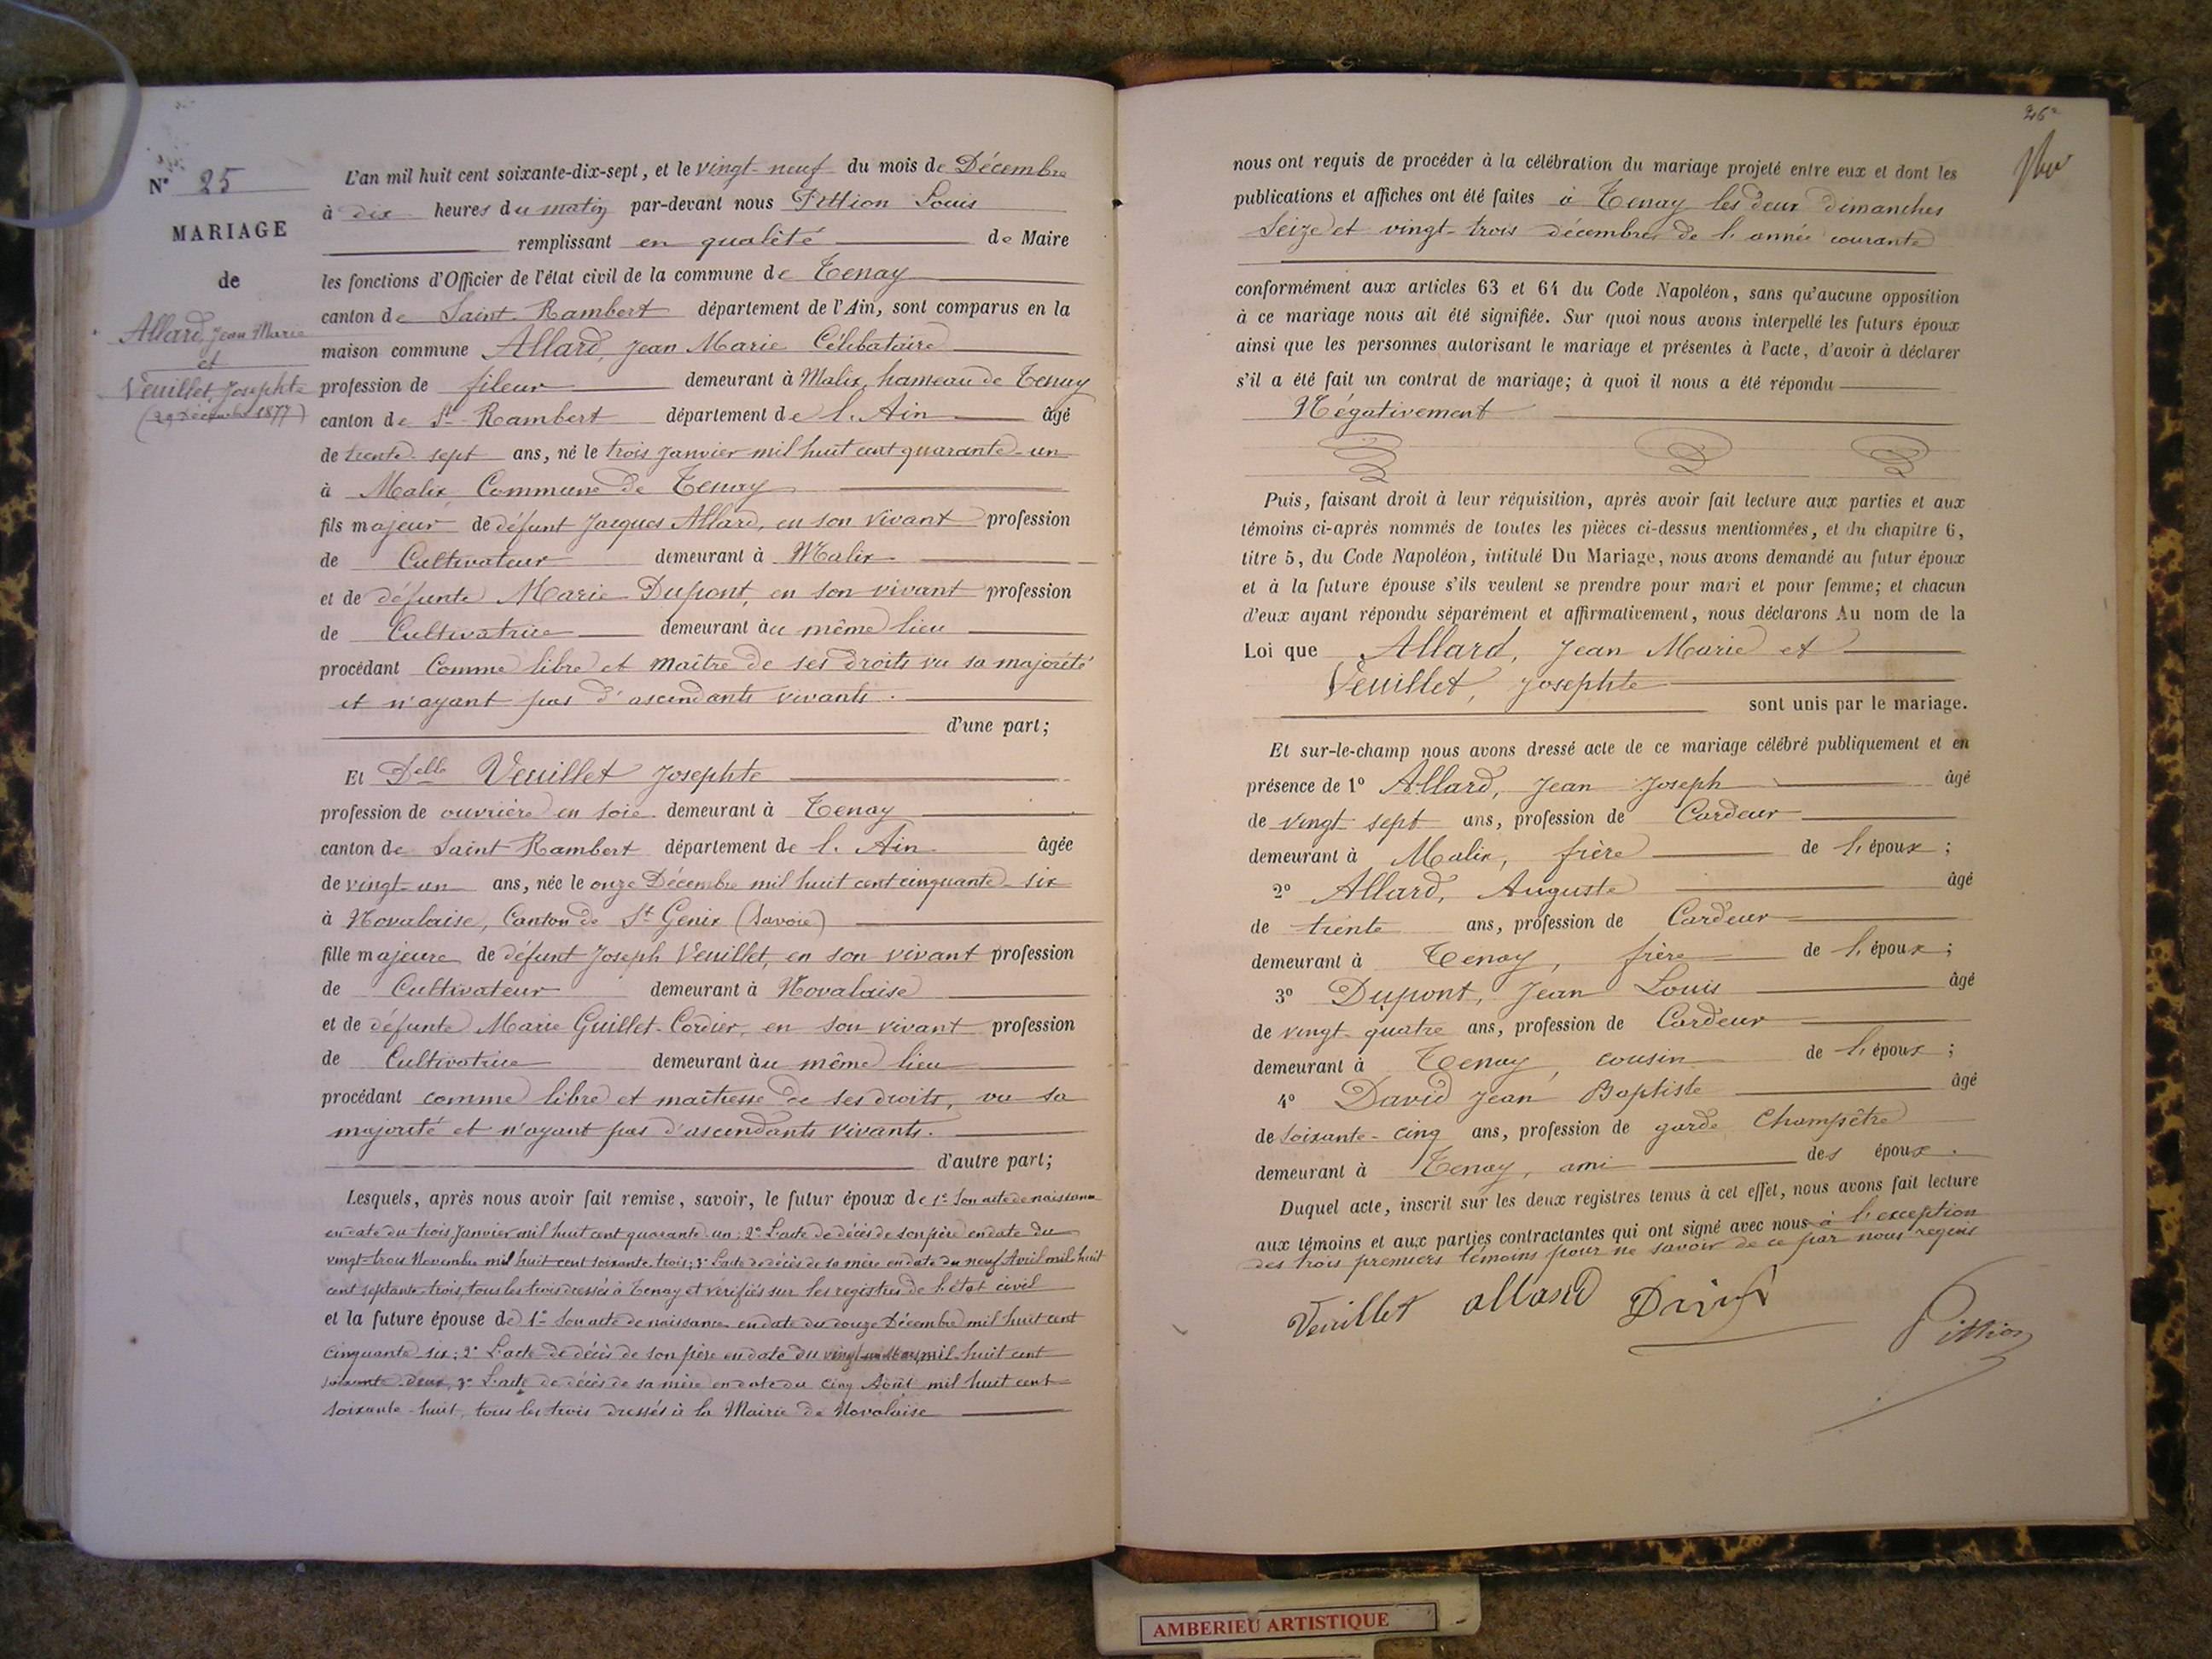 N° 25
MARIAGE
de
Allard, Jean Marie
et
Veuillet, Josephte
(29 Décembre 1877)
L'an mil huit cent soixante-dix-sept, et le vingt-neuf du mois de Décembre
à dix heures du matin par-devant nous Pittion Louis
remplissant en qualité de Maire
les fonctions d'Officier de l'état civil de la commune de Tenay
canton de Saint-Rambert département de l'Ain, sont comparus en la
maison commune Allard, Jean Marie Célibataire
profession de fileur demeurant à Malix, hameau de Tenay
canton de St Rambert département de l'Ain âgé
de trente-sept ans, né le trois Janvier mil huit cent quarante-un
à Malix Commune de Tenay
fils majeur de défunt Jacques Allard, en son vivant profession
de Cultivateur demeurant à Malix
et de défunte Marie Dupont, en son vivant profession
de Cultivatrice demeurant au même lieu
procédant comme libre et maître de ses droits vu sa majorité
et n'ayant pas d'ascendants vivants.
d'une part;
Et Delle Veuillet Josephte
profession de ouvrière en soie demeurant à Tenay
canton de Saint Rambert département de l'Ain âgée
de vingt-un ans, née le onze Décembre mil huit cent cinquante-six
à Novalaise, Canton de St Genix (Savoie)
fille majeure de défunt Joseph Veuillet, en son vivant profession
de Cultivateur demeurant à Novalaise
et de défunte Marie Guillet-Cordier, en son vivant profession
de Cultivatrice demeurant au même lieu
procédant comme libre et maîtresse de ses droits, vu sa
majorité et n'ayant pas d'ascendants vivants.
d'autre part;
Lesquels, après nous avoir fait remise, savoir, le futur époux de 1° Son acte de naissance
en date du trois Janvier mil huit cent quarante un; 2° L'acte de décès de son père en date du
vingt-trois Novembre mil huit cent soixante-trois; 3° L'acte de décès de sa mère en date du neuf Avril mil huit
cent septante-trois, tous les trois dressés à Tenay et vérifiés sur les registres de l'état civil
et la future épouse de 1° Son acte de naissance en date du douze Décembre mil huit cent
cinquante six; 2° L'acte de décès de son père en date du mil huit cent
soixante-deux, 3° L'acte de décès de sa mère en date du cinq Août mil huit cent
soixante-huit, tous les trois dressés à la Mairie de Novalaise
nous ont requis de procéder à la célébration du mariage projeté entre eux et dont les
publications et affiches ont été faites à Tenay les deux dimanches
Seize et vingt-trois décembre de l'année courante
conformément aux articles 63 et 64 du Code Napoléon, sans qu'aucune opposition
à ce mariage nous ait été signifiée. Sur quoi nous avons interpellé les futurs époux
ainsi que les personnes autorisant le mariage et présentes à l'acte, d'avoir à déclarer
s'il a été fait un contrat de mariage; à quoi il nous a été répondu
Négativement
Puis, faisant droit à leur réquisition, après avoir fait lecture aux parties et aux
témoins ci-après nommés de toutes les pièces ci-dessus mentionnées, et du chapitre 6,
titre 5, du Code Napoléon, intitulé Du Mariage, nous avons demandé au futur époux
et à la future épouse s'ils veulent se prendre pour mari et pour femme; et chacun
d'eux ayant répondu séparément et affirmativement, nous déclarons Au nom de la
Loi que Allard, Jean Marie et
Veuillet, Josephte
sont unis par le mariage.
Et sur-le-champ nous avons dressé acte de ce mariage célébré publiquement et en
présence de 1° Allard, Jean Joseph âgé
de vingt-sept ans, profession de Cardeur
demeurant à Malix, frère de l'époux;
2° Allard, Auguste âgé
de trente ans, profession de Cardeur
demeurant à Tenay, frère de l'époux;
3° Dupont, Jean Louis âgé
de vingt-quatre ans, profession de Cardeur
demeurant à Tenay, cousin de l'époux;
4° David Jean Baptiste âgé
de soixante-cinq ans, profession de garde Champêtre
demeurant à Tenay, ami des époux.
Duquel acte, inscrit sur les deux registres tenus à cet effet, nous avons fait lecture
aux témoins et aux parties contractantes qui ont signé avec nous à l'exception
des trois premiers témoins pour ne savoir de ce par nous requis
Veuillet allard David
Pittion
AMBERIEU ARTISTIQUE